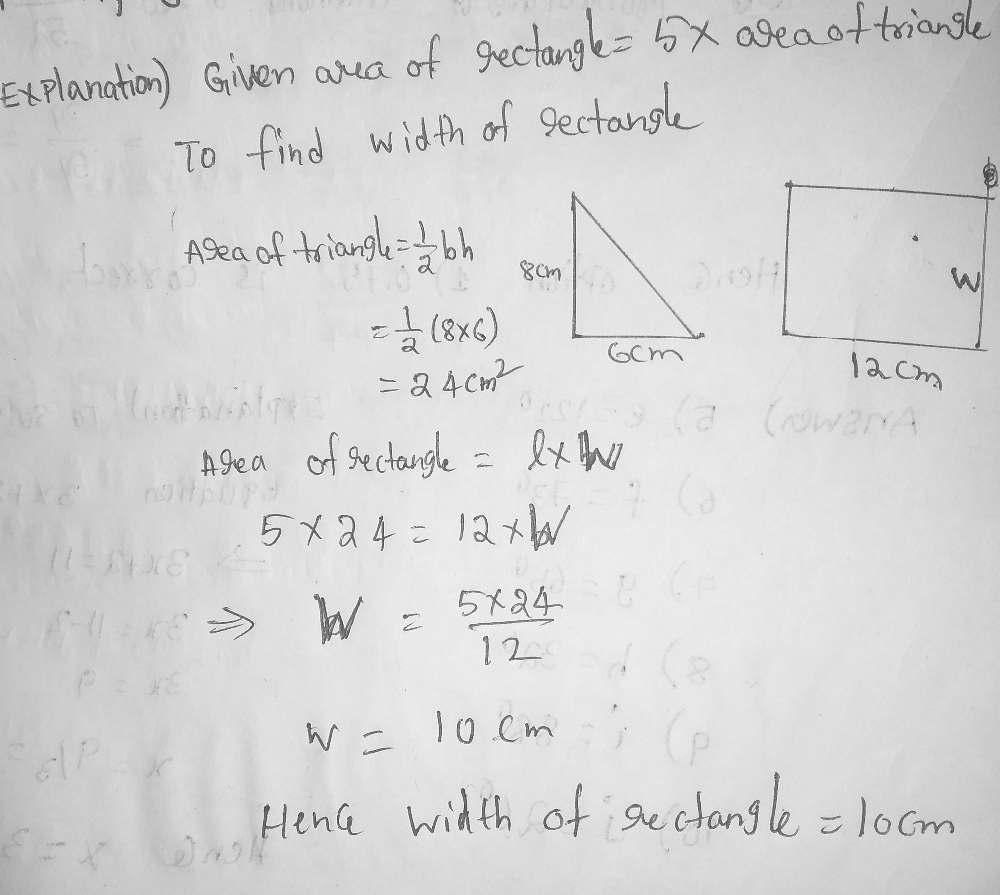 Explanation) Given area of rectangle = 5 x area of triangle
To find width of rectangle
Area of triangle = 1/2 bh
8cm
W
= 1/2 (8x6)
6cm
12 cm
= 24 cm²
Area of rectangle = l x W
5 x 24 = 12 x W
⇒ W = 5x24/12
W = 10 cm
Hence width of rectangle = 10cm